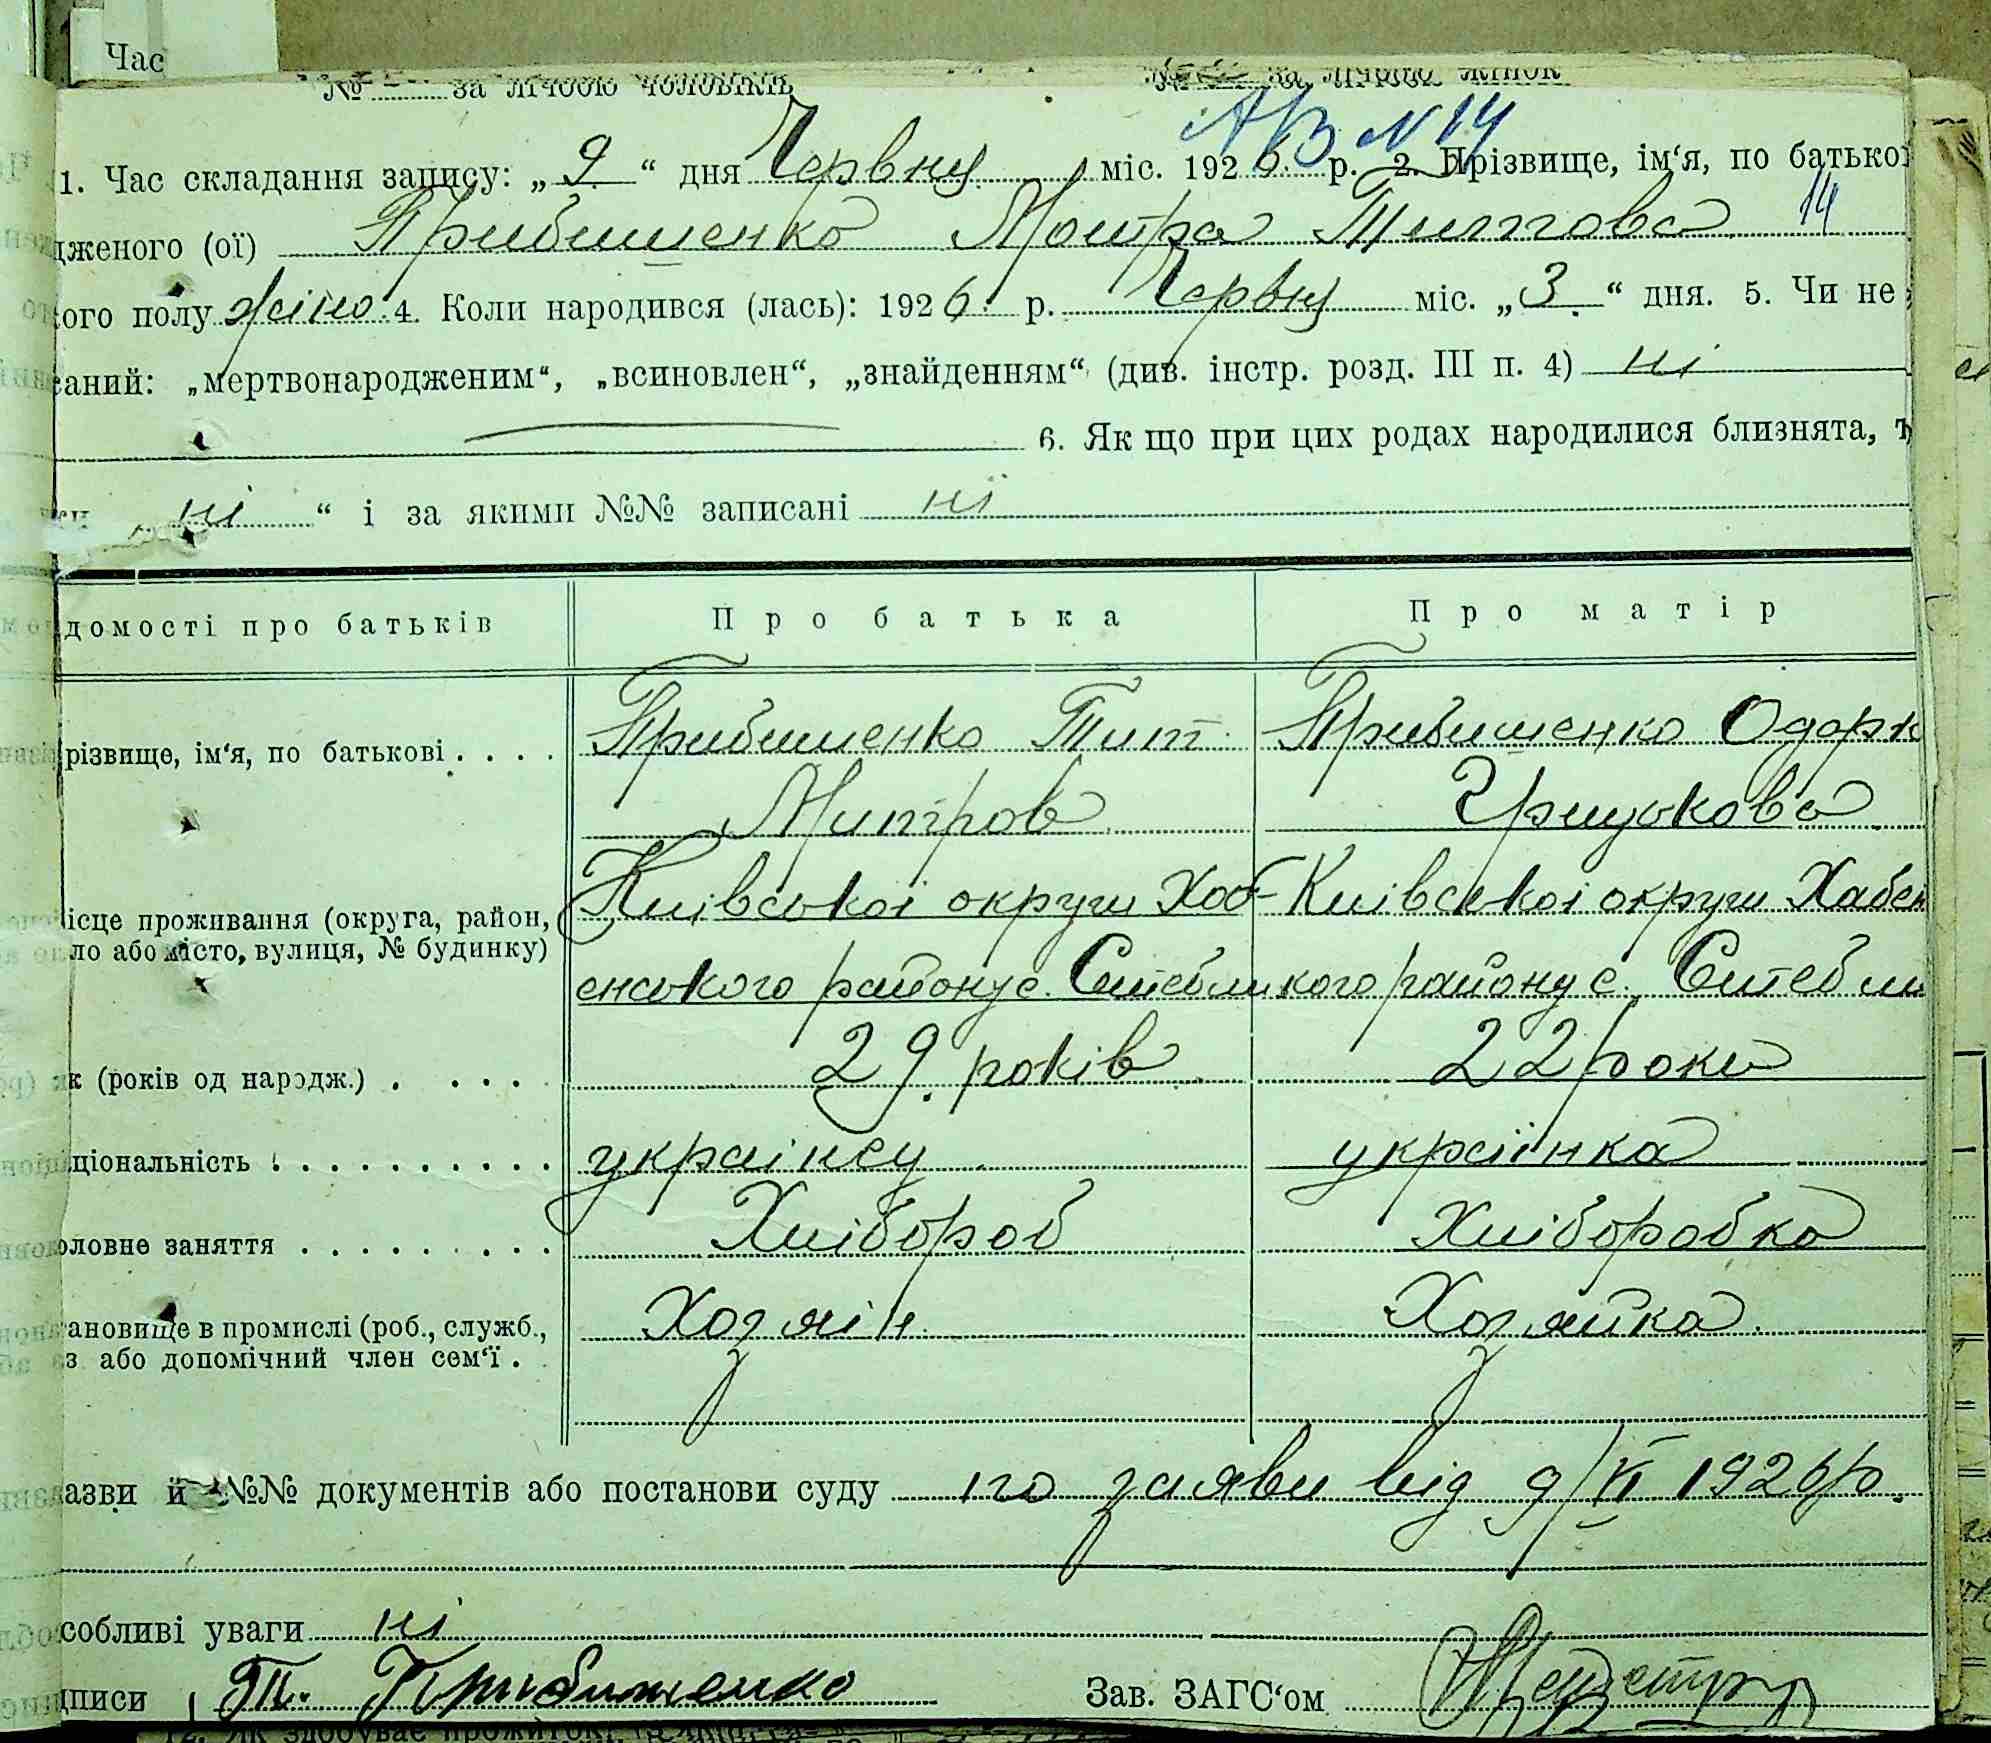 Час
№ за лічбою чоловіків № за лічбою жінок
АВ №14
1. Час складання запису: „9“ дня Червня міс. 1926 р. 2. Прізвище, ім‘я, по батькові
дженого (ої) Прибишенко Мотра Титтова 14
кого полу жіно. 4. Коли народився (лась): 1926 р. Червня міс. „3“ дня. 5. Чи не
саний: „мертвонародженим“, „всиновлен“, „знайденням“ (див. інстр. розд. III п. 4) ні
6. Як що при цих родах народилися близнята,
ні “ і за якими №№ записані ні
домості про батьків Про батька Про матір
різвище, ім‘я, по батькові . . . . Прибишенко Тит Прибишенко Одарк
Митров Грицькова
ісце проживання (округа, район, Київської округи Хаб- Київської округи Хабен
ло або місто, вулиця, № будинку) енського району с. Стебли кого району с. Стебли
к (років од народж.) . . . . . 29 років 22 роки
ціональність . . . . . . . . . . українец українка
оловне заняття . . . . . . . . . Хлібороб Хліборобка
тановище в промислі (роб., служб., Хозяін Хозяйка
з або допомічний член сем‘ї .
азви й №№ документів або постанови суду по заяви від 9/VI 1926 р.
собливі уваги ні
дписи Т. Прибишенко Зав. ЗАГС‘ом